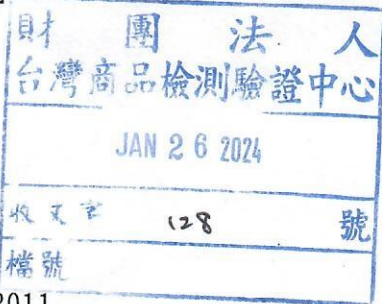 財團法人
台灣商品檢測驗證中心
JAN 26 2024
收文字 128 號
檔號
2011